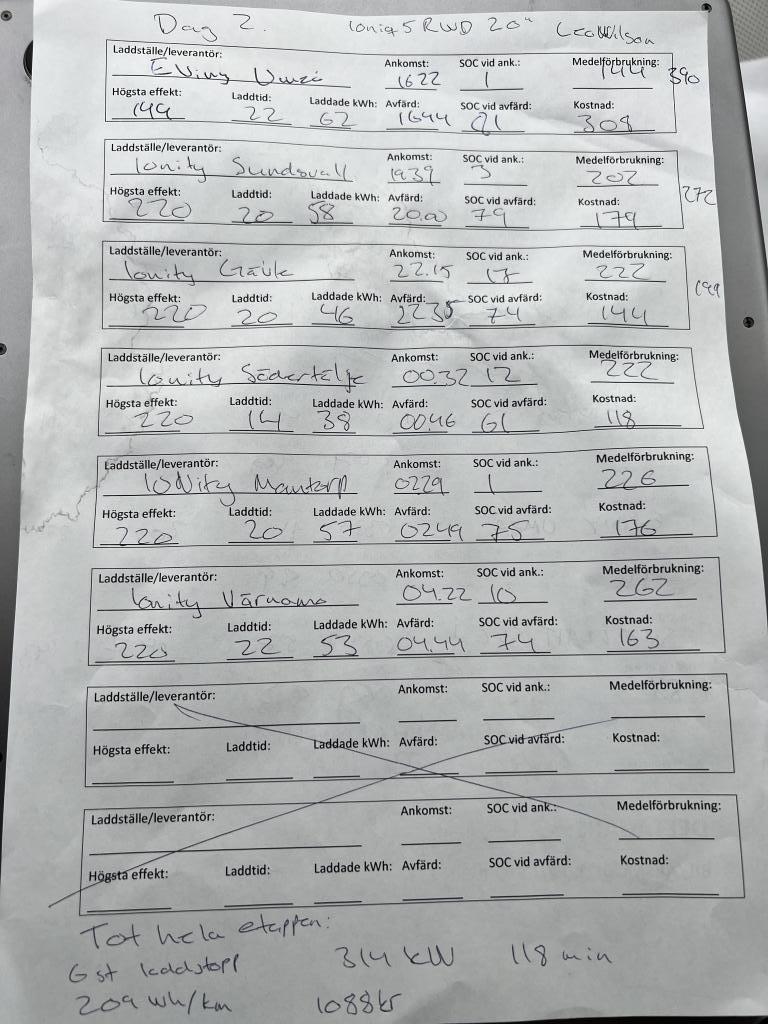 Dag 2. Ioniq 5 RWD 20" Leo Wilson
Laddställe/leverantör: Ankomst: SOC vid ank.: Medelförbrukning:
EViny 1622 1 144 390
Högsta effekt: Laddtid: Laddade kWh: Avfärd: SOC vid avfärd: Kostnad:
149 22 62 1644 81 308
Laddställe/leverantör: Ankomst: SOC vid ank.: Medelförbrukning:
Ionity Sundsvall 1939 3 202
Högsta effekt: Laddtid: Laddade kWh: Avfärd: SOC vid avfärd: Kostnad: 272
220 20 58 20.00 79 179
Laddställe/leverantör: Ankomst: SOC vid ank.: Medelförbrukning:
Ionity Gävle 22.15 17 222
Högsta effekt: Laddtid: Laddade kWh: Avfärd: SOC vid avfärd: Kostnad:
220 20 46 2235 74 144
Laddställe/leverantör: Ankomst: SOC vid ank.: Medelförbrukning:
Ionity Södertälje 00.32 12 222
Högsta effekt: Laddtid: Laddade kWh: Avfärd: SOC vid avfärd: Kostnad:
220 14 38 00.46 61 118
Laddställe/leverantör: Ankomst: SOC vid ank.: Medelförbrukning:
IONity Mantorp 0229 1 226
Högsta effekt: Laddtid: Laddade kWh: Avfärd: SOC vid avfärd: Kostnad:
220 20 57 0249 75 176
Laddställe/leverantör: Ankomst: SOC vid ank.: Medelförbrukning:
Ionity Värnamo 04.22 10 262
Högsta effekt: Laddtid: Laddade kWh: Avfärd: SOC vid avfärd: Kostnad:
220 22 53 04.44 74 163
Laddställe/leverantör: Ankomst: SOC vid ank.: Medelförbrukning:
Högsta effekt: Laddtid: Laddade kWh: Avfärd: SOC vid avfärd: Kostnad:
Laddställe/leverantör: Ankomst: SOC vid ank.: Medelförbrukning:
Högsta effekt: Laddtid: Laddade kWh: Avfärd: SOC vid avfärd: Kostnad:
Tot hela etappen:
6 st laddstopp 314 kW 118 min
209 Wh/km 1088kr